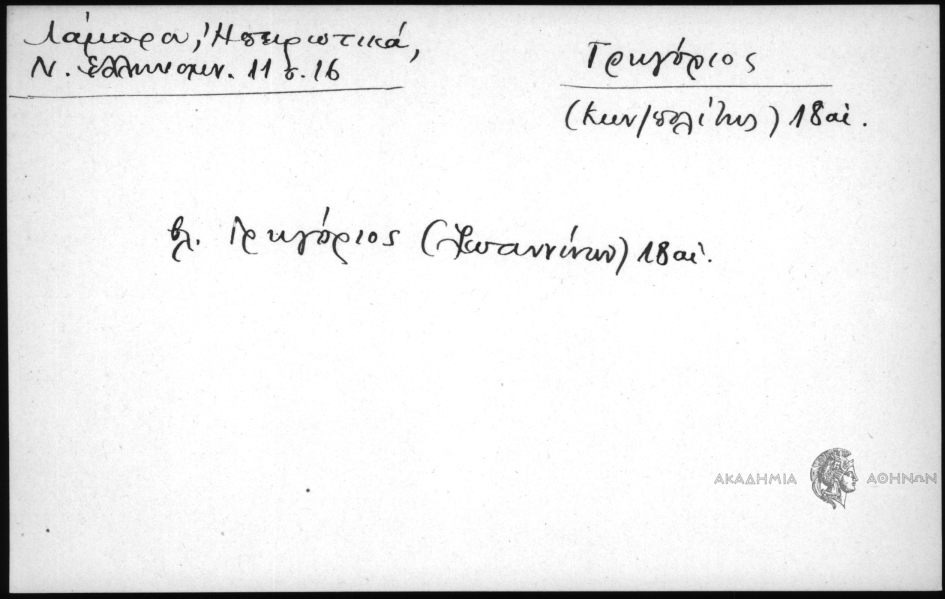 Λάμπρου, Ἠπειρωτικά,
Ν. Ἑλληνομν. 11 σ. 16
Γρηγόριος
(Κων/πολίτης) 18 αἰ.
βλ. Γρηγόριος (Ἰωαννίνων) 18 αἰ.
ΑΚΑΔΗΜΙΑ ΑΘΗΝΩΝ